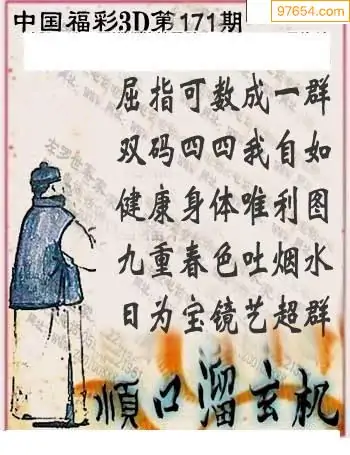 97654.com
中国福彩3D第171期
屈指可数成一群
双码四四我自如
健康身体唯利图
九重春色吐烟水
日为宝镜艺超群
顺口溜玄机